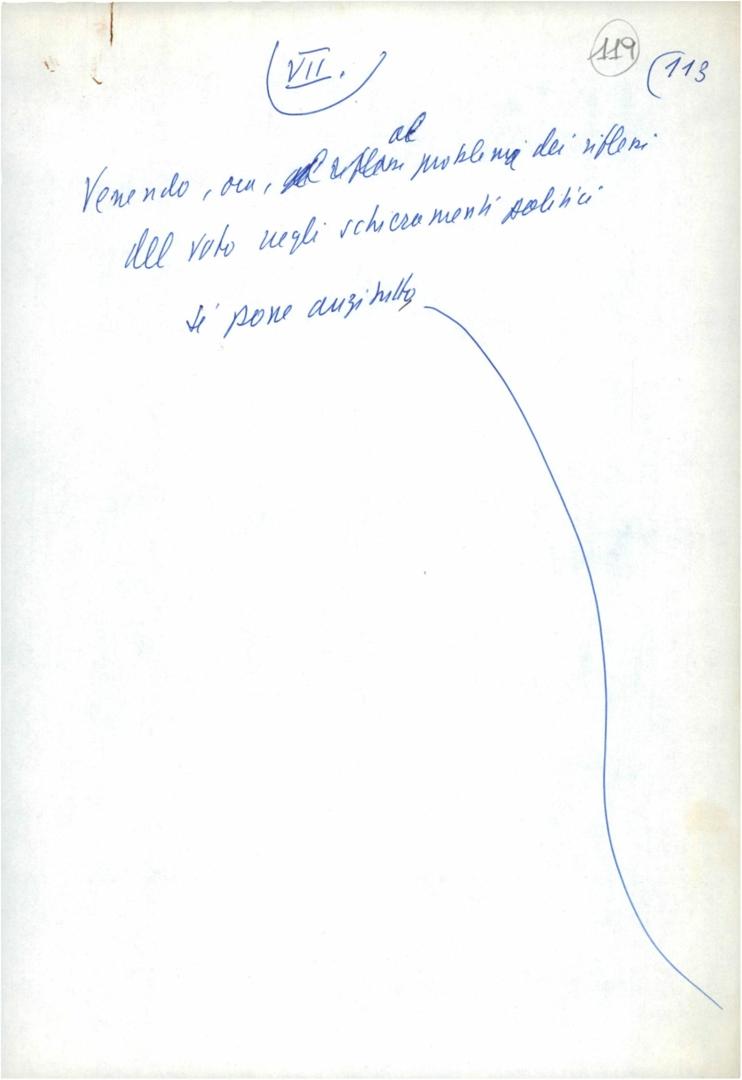 119
(113
VII.
Venendo, ora, al problema dei riflessi
del voto negli schieramenti politici
si pone anzitutto